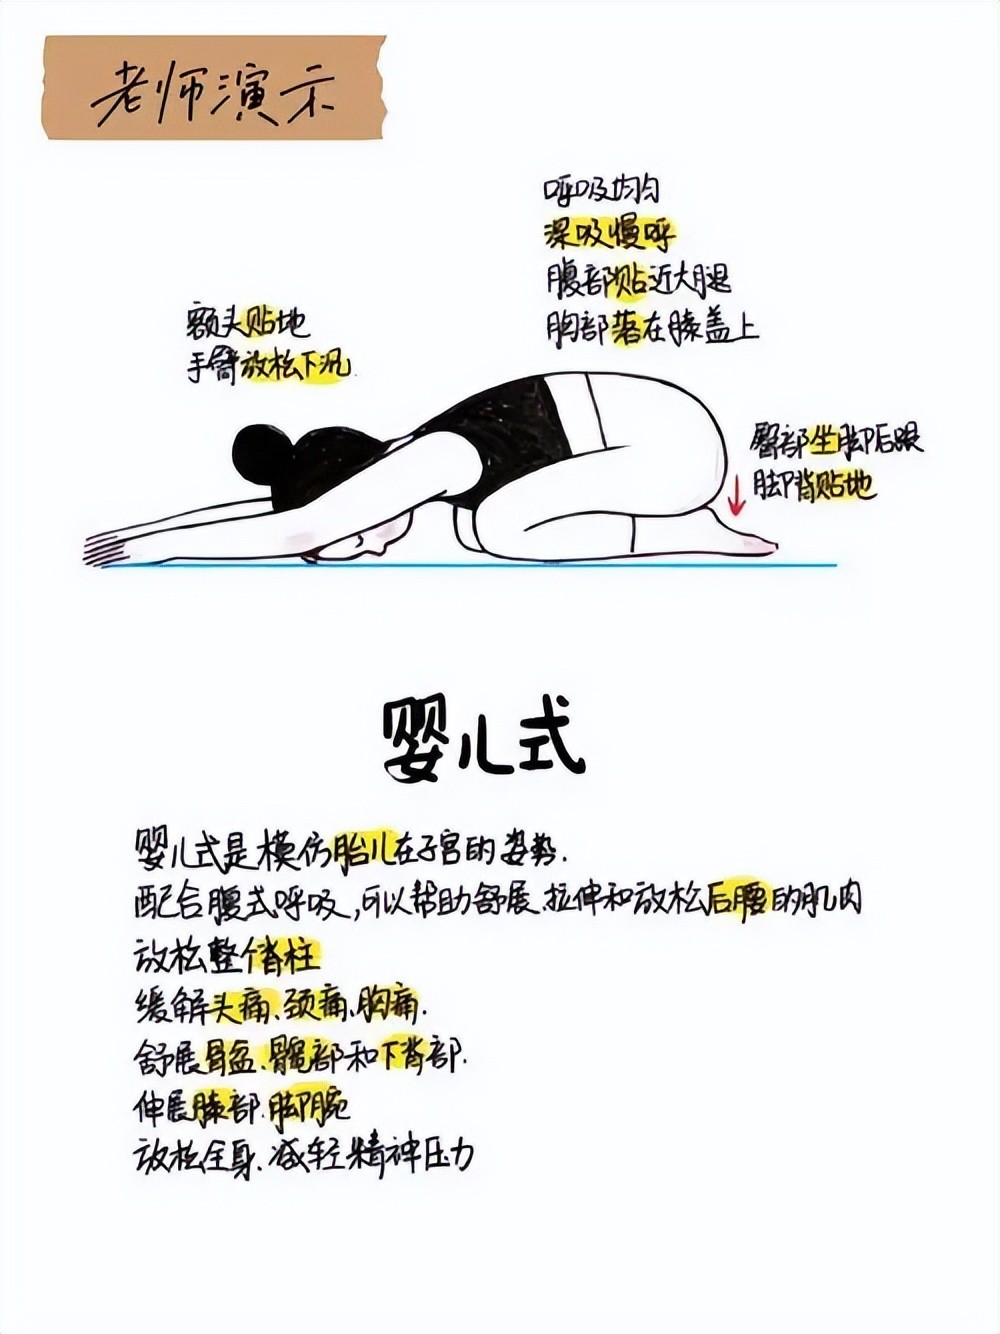 老师演示
呼吸均匀
深吸慢呼
腹部贴近大腿
胸部落在膝盖上
额头贴地
手臂放松下沉.
臀部坐脚后跟
脚背贴地
婴儿式
婴儿式是模仿胎儿在子宫的姿势.
配合腹式呼吸,可以帮助舒展、拉伸和放松后腰的肌肉
放松整个脊柱
缓解头痛、颈痛、胸痛.
舒展骨盆、髋部和下背部.
伸展膝部、脚腕
放松全身、减轻精神压力